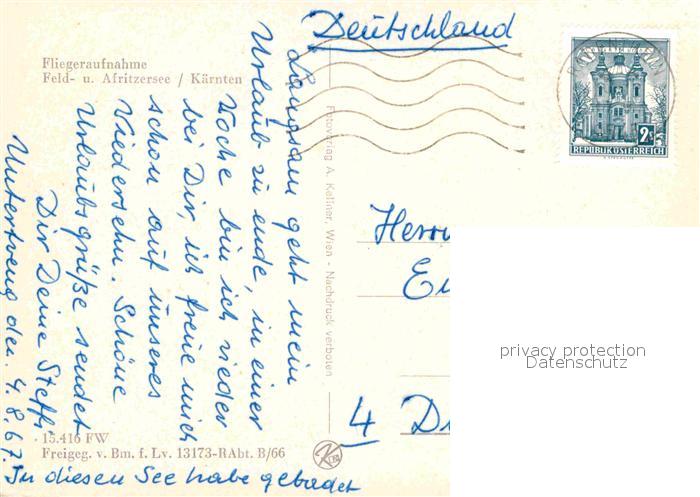 Deutschland
Fliegeraufnahme
Feld- u. Afritzersee / Kärnten
2.S
REPUBLIK ÖSTERREICH
Langsam geht mein
Urlaub zu ende, in einer
Woche bin ich wieder
bei Dir, ich freue mich
schon auf unseres
Wiedersehn. Schöne
Urlaubsgrüße sendet
Dir Deine Steffi.
den. 4.8.67.
In diesen See habe gebadet
Fotoverlag A. Kellner, Wien - Nachdruck verboten
Herrn
4 D
privacy protection
Datenschutz
15.416 FW
Freigeg. v. Bm. f. Lv. 13173-RAbt. B/66